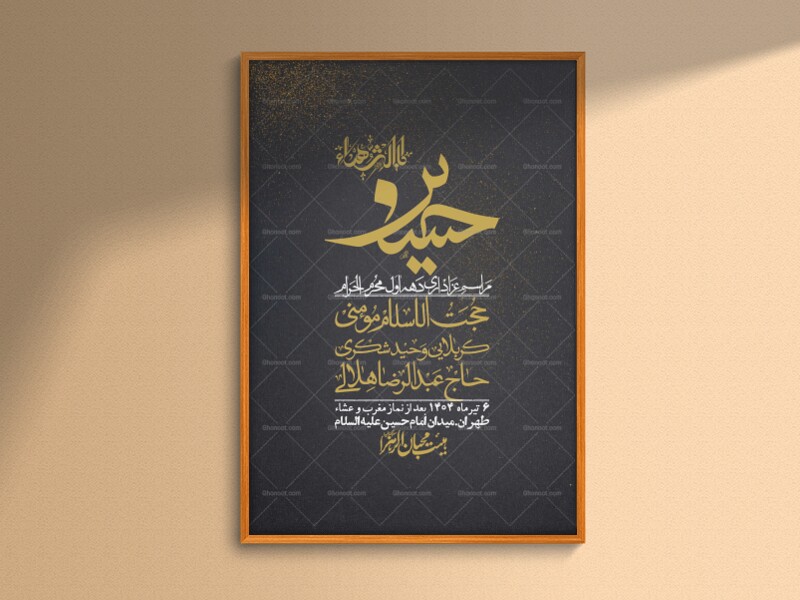 مراسم عزاداری دهه اول محرم الحرام
حجت الاسلام مومنی
کربلایی وحید شکری
حاج عبدالرضا هلالی
۶ تیر ماه ۱۴۰۴ بعد از نماز مغرب و عشاء
طهران.میدان امام حسین علیه السلام
هیئت محبان الزهرا
Ghonoot.com